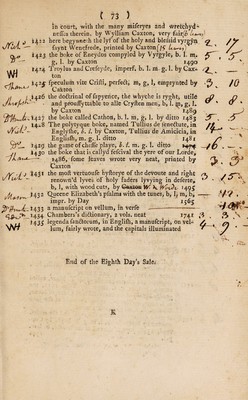 ( 73 )
in court, with the many miseryes and wretchyd-
nesses therein. by Wylliam Caxton, very fair
1422 here begynneth the lyf of the holy and blessid vyrgyn
saynt Wenefrede, printed by Caxton 2 . 17
1423 the boke of Eneydos compyled by Vyrgyle, b. l. m.
g. l. by Caxton 1490 5 . 5
1424 Troylus and Creseyde, imperf. b. l. m. g. l. by Cax-
ton
1425 speculum vite Cristi, perfect, m, g, l, empryntyd by
Caxton 3 . 10
1426 the doctrinal of sapyence, the whyche is ryght, utile
and prouffyttable to alle Crysten men, b, l, m, g, l,
by Caxton 1489 8 . 8 .
1427 the boke called Cathon, b, l, m, g, l, by ditto 1483 5 . 5
1428 The polytyque boke, named Tullius de senectute, in
Englysshe, b. l. by Caxton, Tullius de Amicicia, in
English, m. g. l. ditto 1481 14
1429 the game of chesse playe, b. l. m. g. l. ditto 16 .
1430 the boke that is callyd festival the yere of our Lorde,
1486, some leaves wrote very neat, printed by
Caxton 3 . 3
1431 the most vertuouse hystorye of the devoute and right
renown'd lyves of holy faders lyvying in deserte,
b, l, with wood cuts, by W. de Worde 1495 3 . 15
1432 Queene Elizabeth's psalms with the tunes, b, l, m, b,
impr. by Day 1565
1433 a manuscript on vellum, in verse
1434 Chambers's dictionary, 2 vols. neat 1741 3 . 3 .
1435 legenda sanctorum, in English, a manuscript, on vel-
lum, fairly wrote, and the capitals illuminated 4 . 9
End of the Eighth Day's Sale.
K